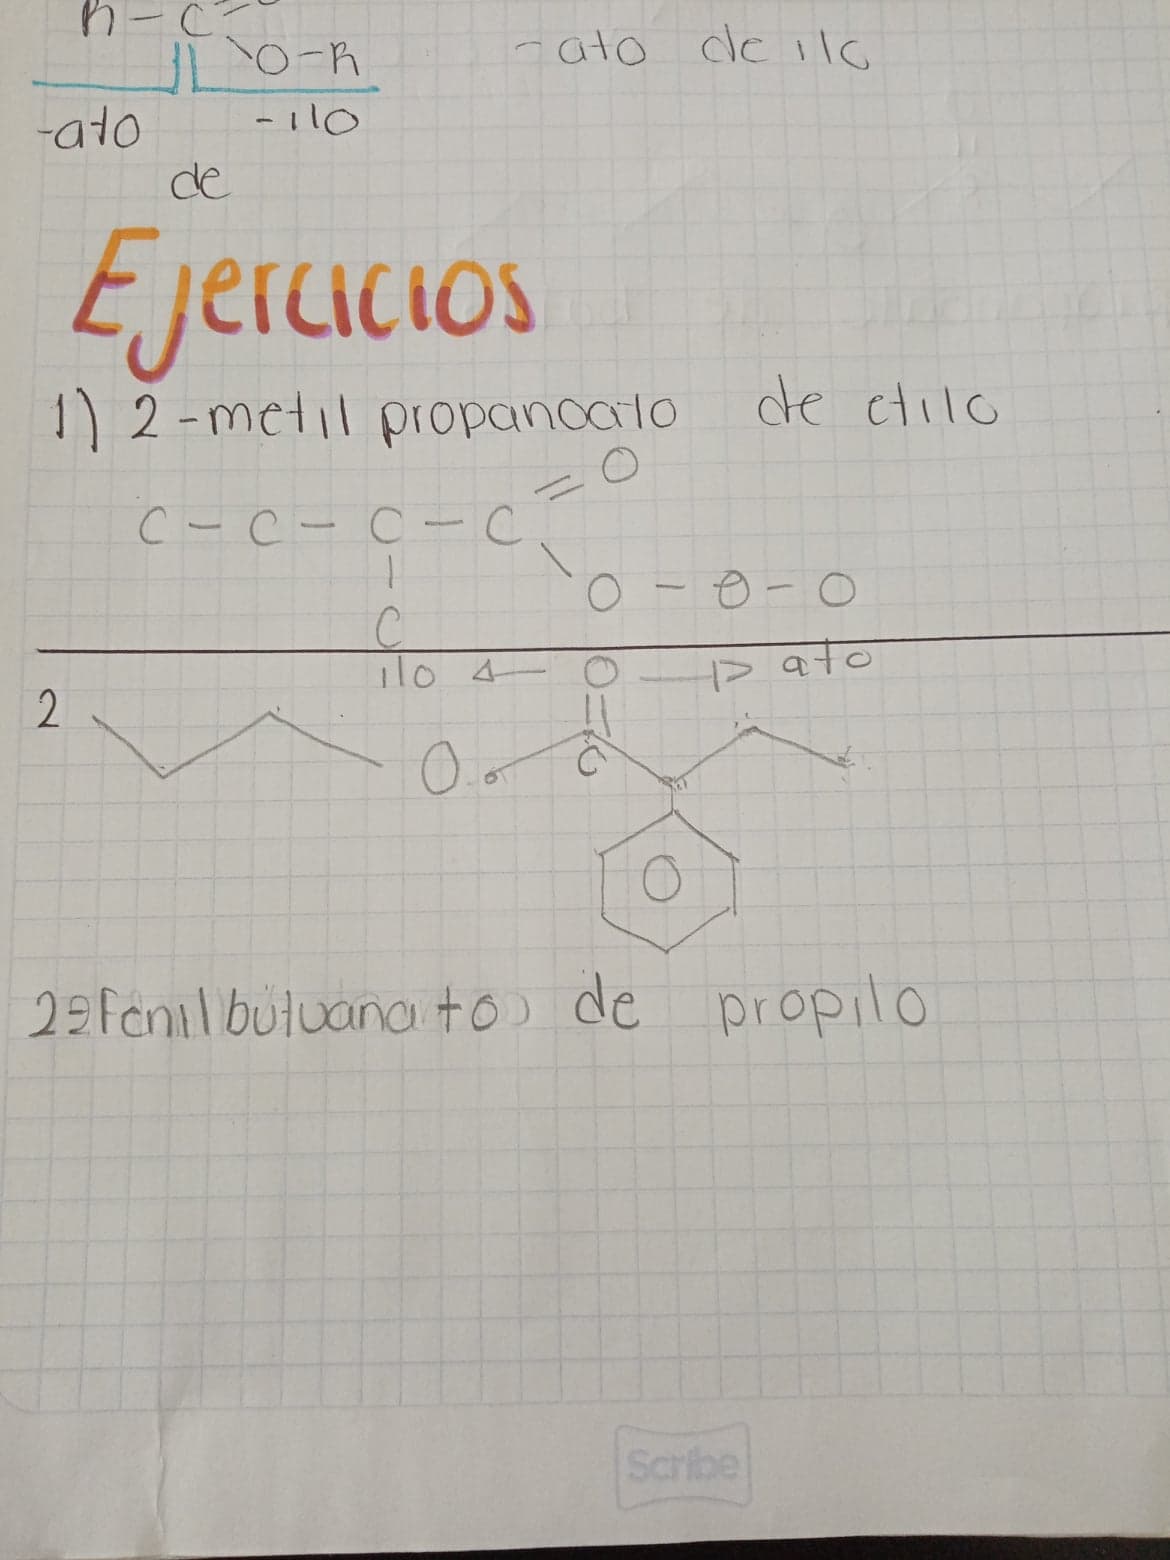 R-C=
O-R
-ato de ilo
-ato -ilo
de
Ejercicios
1) 2-metil propanoato de etilo
=O
C-C-C-C
O-O-O
C
ilo O ato
2
O C
O
de propilo
Scribe